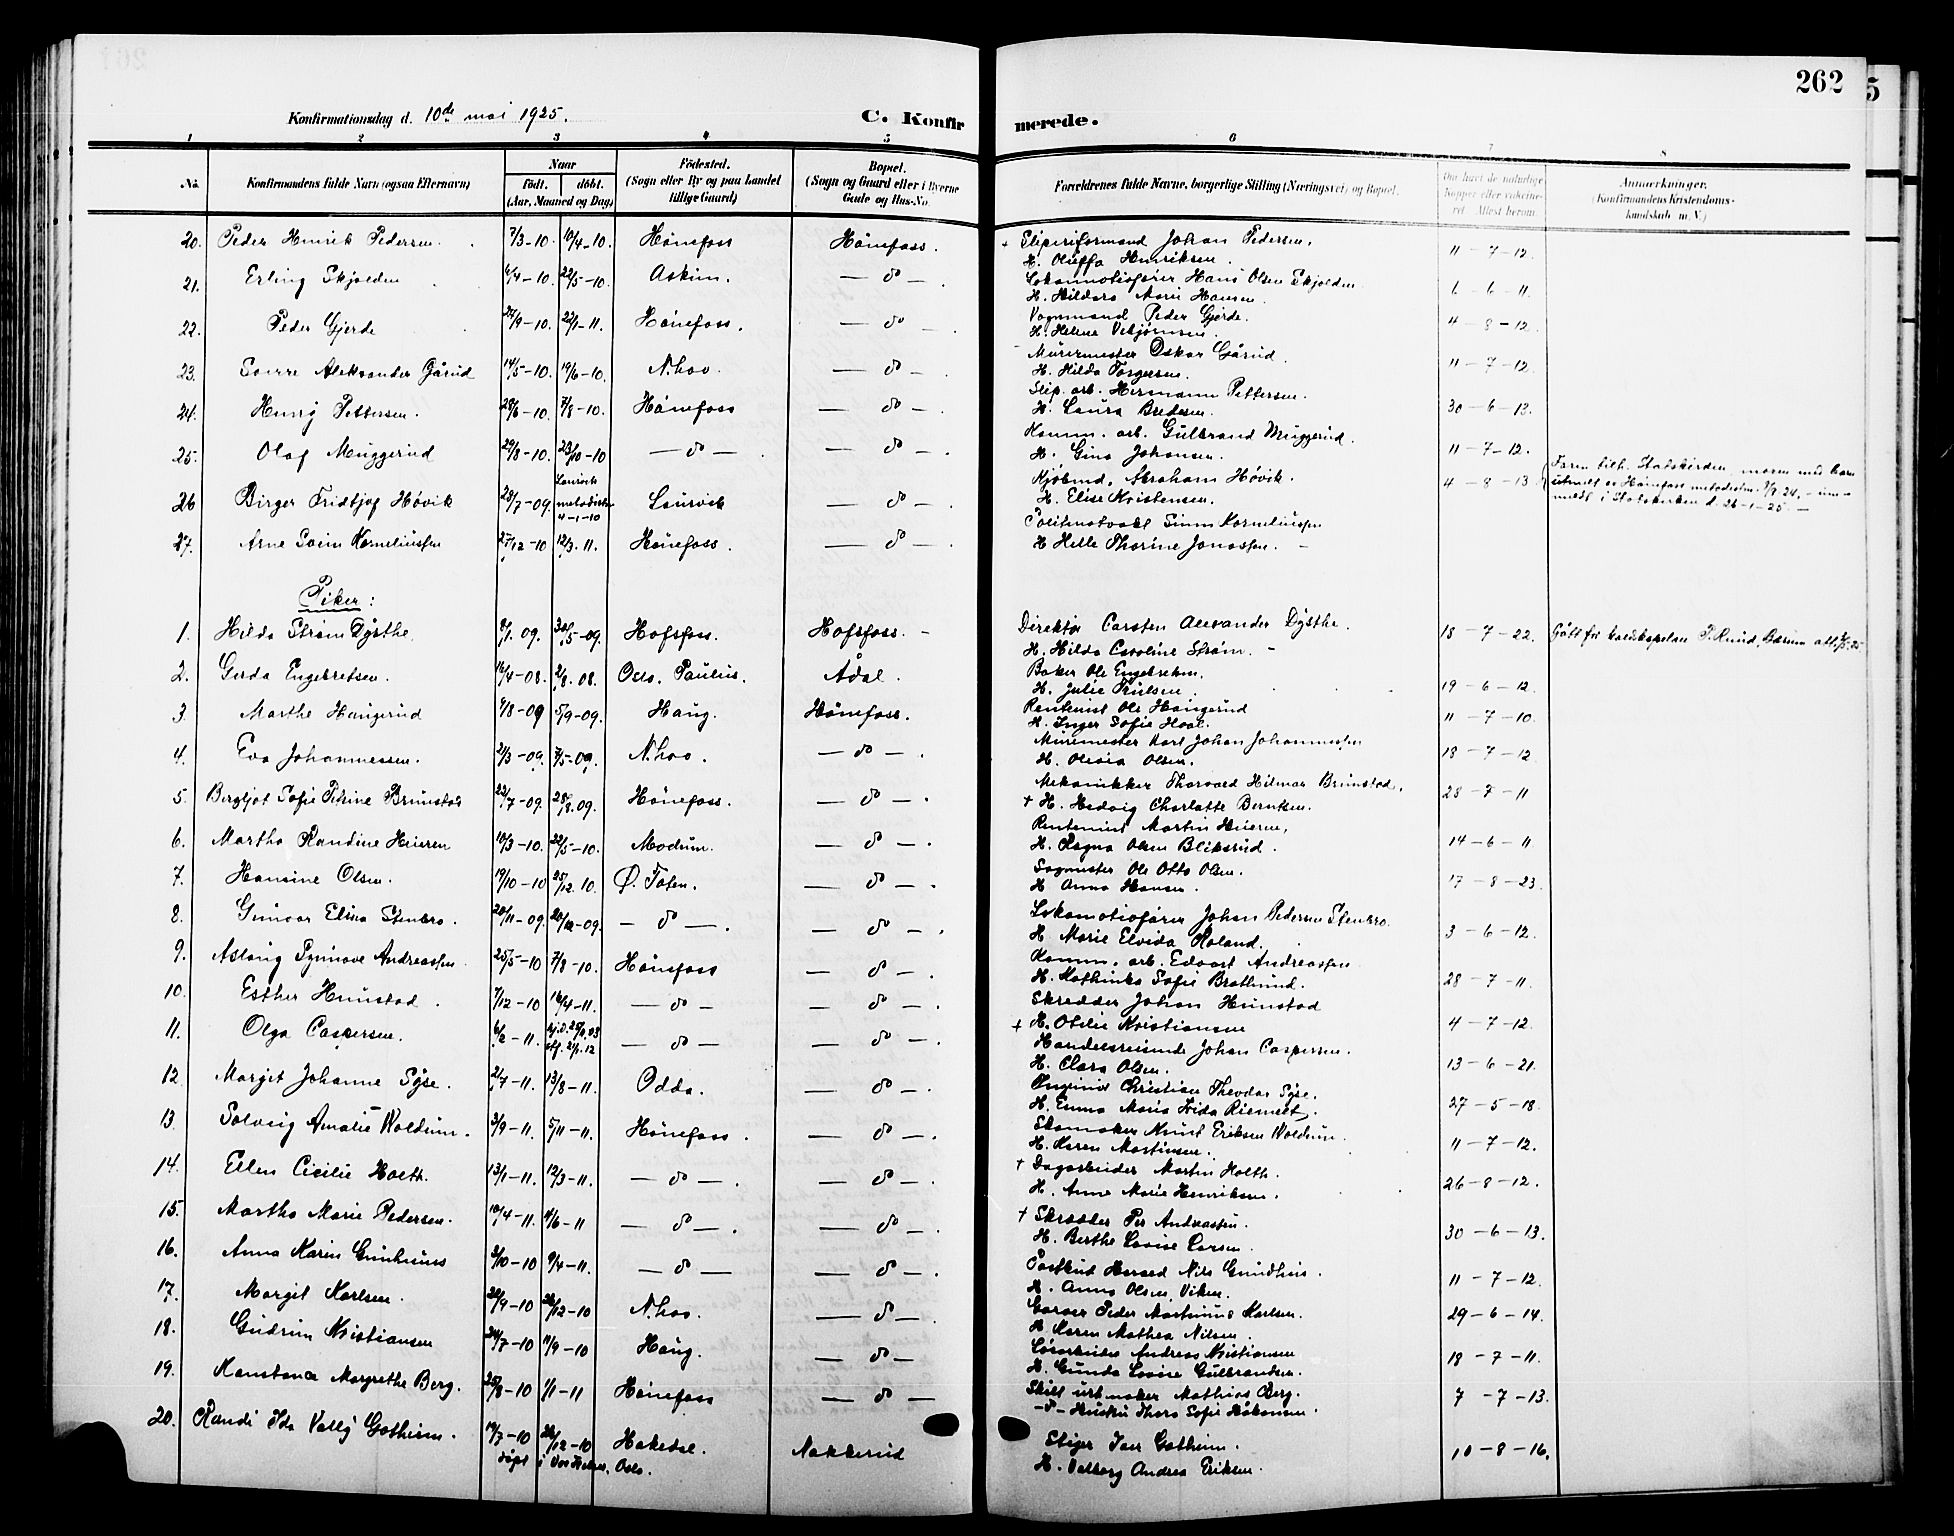 262
Konfirmationsdag d. 10de mai 1925.
C. Konfirmerede.
1 2 3 4 5 6 7 8
No. Konfirmandens fulde Navn (ogsaa Efternavn) Naar født. døbt. (Aar, Maaned og Dag) Fødested. (Sogn eller By og paa Landet tillige Gaard) Bopæl. (Sogn og Gaard eller i Byerne Gade og Hus-No. Forældrenes fulde Navne, borgerlige Stilling (Næringsvei) og Bopæl. Om havt de naturlige Kopper eller vakcineret. Attest herom. Anmærkninger. (Konfirmandens Kristendomskundskab m. V.)
20. Peder Henrik Pedersen. 7/3-10. 10/4-10. Hönefoss Hönefoss. + Sliperiformand Johan Pedersen. H. Oluffa Henriksen. 11-7-12.
21. Erling Skjolden 6/4-10. 22/5-10. Askim. — do — Lokomotivfører Hans Olsen Skjolden H. Hildara Marie Hansen. 6-6-11.
22. Peder Gjerde 27/9-10. 22/1-11. Hönefoss. — do — Vognmand Peder Gjerde. H. Helene Vebjørnsen. 4-8-12.
23. Sverre Aleksander Gårud 14/5-10. 19/6-10. N.hov. — do — Murermester Oskar Gårud. H. Hilda Torgersen. 11-7-12.
24. Henry Pettersen. 28/6-10. 7/8-10. Hönefoss — do — Slip. arb. Hermann Pettersen. H. Laura Bredesen. 30-6-13.
25. Olaf Muggerud 29/8-10. 23/10-10 — do — — do — Komm. arb. Gulbrand Muggerud. H. Gina Johansen. 11-7-12.
26 Birger Fridtjof Hövik 28/7-09. Laurvik metodistk. 4-1-10 Laurvik — do — Kjöbmd. Abraham Hövik. H. Elise Kristensen. 4-8-13 Faren tilh. Statskirken, moren med barn utmeldt av Hönefoss metodistm. 1/8 24. - innmeldt i Statskirken d. 26-1-25. —
27. Arne Svein Korneliussen 27/12-10 12/3.11. Hönefoss. — do — Politimatvakt Simen Korneliussen H Helle Thorine Jonassen. —
Piker:
1. Hilda Strøm Dysthe. 8/1.09. 30/5-09. Hofsfoss. Hofsfoss. - Direktør Carsten Alexander Dysthe. H. Hilda Caroline Strøm. - 18-7-22.
2. Gerda Engebretsen. 16/4-08. 2/8.08. Oslo, Paulus. Ådal. Baker Ole Engebretsen. H. Julie Truelsen. 19-6-12.
3. Marthe Haugerud 9/8-09 5/9-09. Haug. Hönefoss. Rentenist Ole Haugerud H. Inger Sofie Hval. 11-7-10.
4. Eva Johannessen. 21/3-09. 7/5-09. N.hov. — do — Murermester Karl Johan Johannessen H. Olivia Olsen. 18-7-12
5. Bergljot Sofie Petrine Brunstad 22/7-09. 28/8.09. Hönefoss. — do — Mekanikker Thorvald Hilmar Brunstad. + H. Hedvig Charlotte Berntsen. 28-7-11
6. Martha Randine Hieren 10/3-10. 22/5-10. Modum. — do — Rentenist Martin Hieren. H. Ragna Olsen Bliksrud. 14-6-11
7. Hansine Olsen. 19/10-10 25/12.10. Ø. Toten. — do — Sagmester Ole Otto Olsen. H Anna Hansen. 17-8-23.
8. Gunvor Elina Stenbro. 20/11-09. 26/12-09. — do — — do — Lokomotivfører Johan Pedersen Stenbro. H Marie Elvida Roland. 3-6-12.
9. Aslaug Synnøve Andreassen 25/5-10 7/8-10. Hönefoss — do — Komm. arb. Edvart Andreassen H. Kathinka Sofie Bratlund. 28-7-11.
10. Esther Hunstad. 7/12-10 16/4-11. — do — — do — Skredder Johan Hunstad + H. Otelie Kristiansen 4-7-12.
11. Olga Caspersen. 6/2-11. — do — — do — Handelsreisende Johan Caspersen. H. Clara Olsen. 13-6-21.
12 Margit Johanne Syse. 2/7-11. 13/8-11. Odda. — do — Ingeniør Christian Theodor Syse. H. Emma Maria Frida Riemelt. 27-5-18.
13. Solveig Amalie Voldum. 3/9-11. 5/11-11. Hönefoss. — do — Skomaker Knut Eriksen Voldum. H. Karen Martinsen. 11-7-12.
14. Ellen Cicilie Holth. 13/1-11. 12/3-11. — do — — do — + Dagarbeider Martin Holth. H. Anne Marie Henriksen. 26-8-12.
15. Martha Marie Pedersen. 10/4-11. 4/6-11 — do — — do — + Skrædder Per Andreassen. H. Berthe Lovise Larsen. 30-6-13.
16. Anna Karin Gundhuus 3/10-10 9/4-11. — do — — do — Postbud Harald Nils Gundhus. H. Anna Olsen Viken. 11-7-12.
17. Margit Karlsen. 20/9-10 26/12-10 N.hov — do — Garver Peder Martinius Karlsen. H Karen Mathea Nilsen. 29-6-14.
18. Gudrun Kristiansen 24/7-10 11/9-10 Haug. — do — Løsarbeider Andreas Kristiansen H. Gunda Lovise Gulbrandsen. 18-7-11.
19. Konstance Margrethe Berg. 25/8-10 1/1-11 Hönefoss — do — Mathias Berg. Hustru Thora Sofie Håkonsen. 7-7-13.
20. Randi Ida Vally Gotheim. 19/7-10 26/12-10 døpt i Vor Frelser, Oslo. Hakedal. Nakkerud Stiger Iver Gotheim. H. Valborg Andrea Eriksen. 10-8-16.